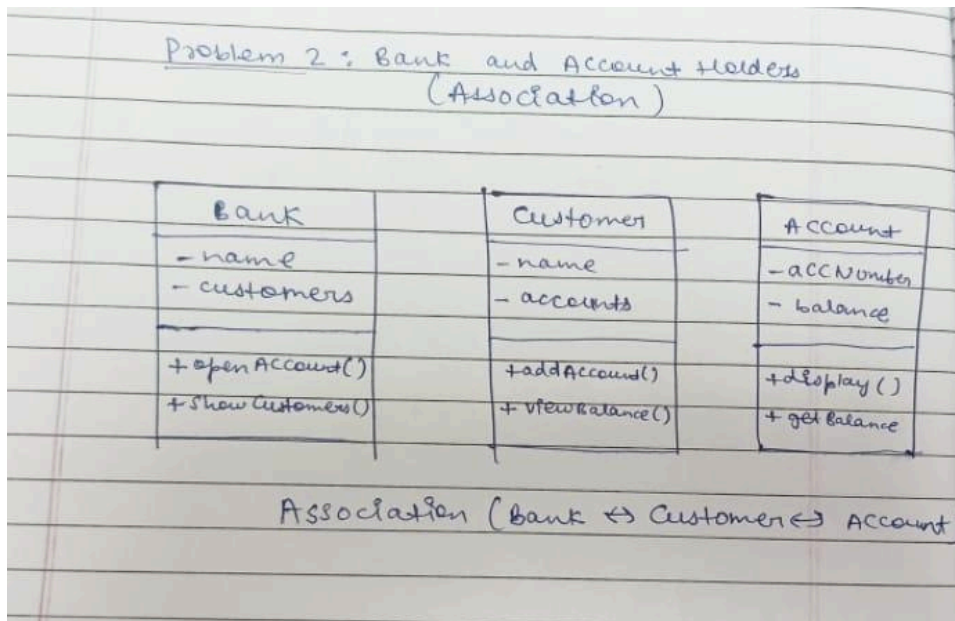 Problem 2 : Bank and Account Holders
(Association)
Bank
- name
- customers
+ openAccount()
+ ShowCustomers()
Customer
- name
- accounts
+ addAccount()
+ viewBalance()
Account
- accNumber
- balance
+ display()
+ getBalance
Association (Bank ↔ Customer ↔ Account